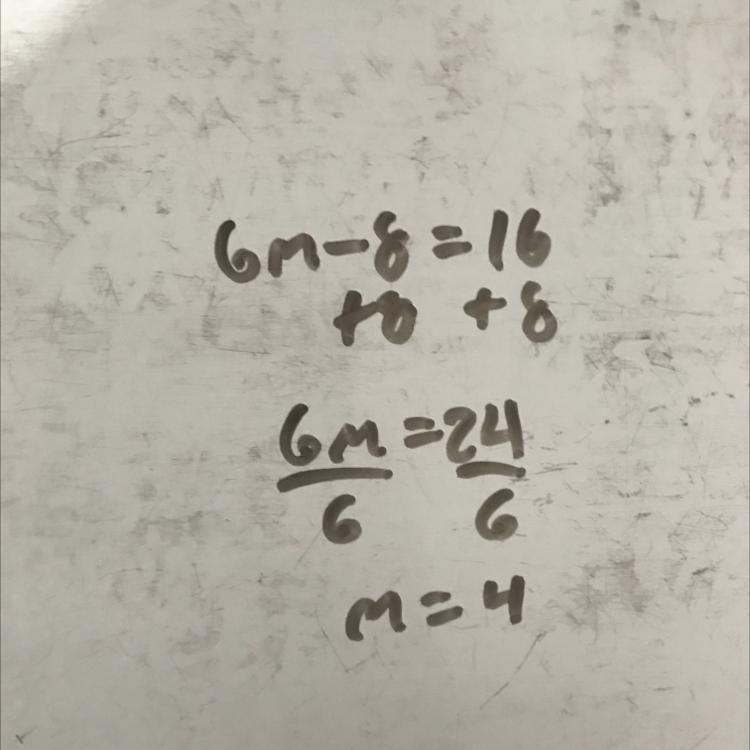 6m-8=16
+8 +8
6m=24
6 6
m=4